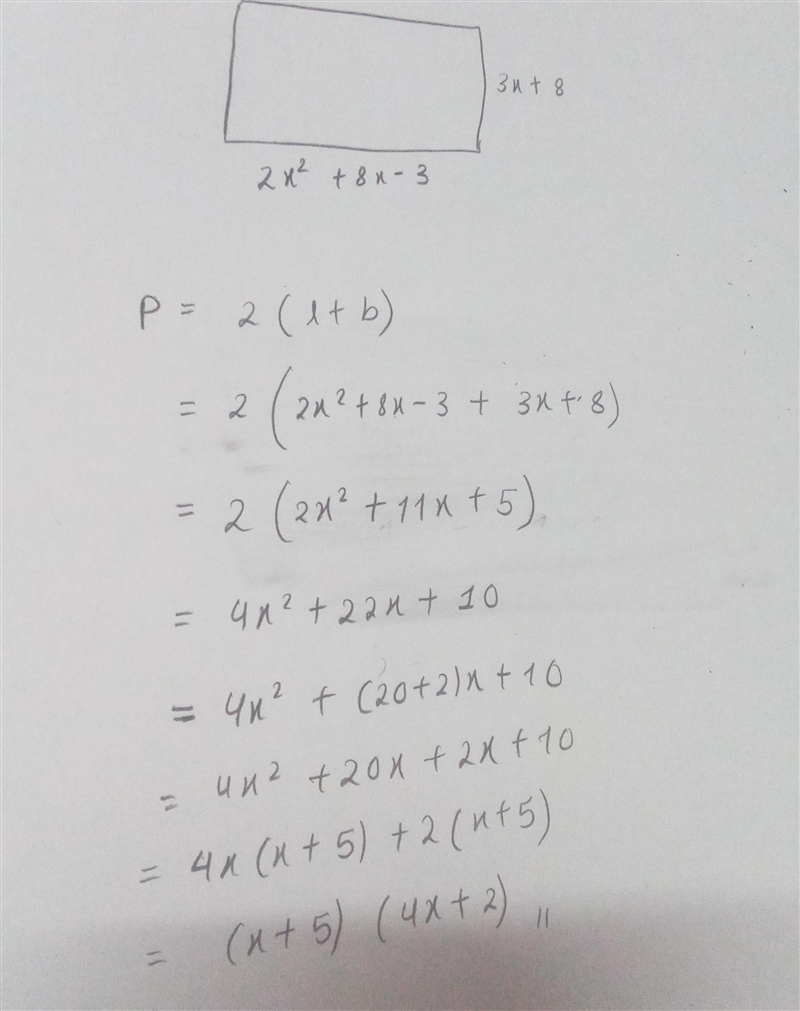 3x + 8
2x² + 8x - 3
P = 2 (l + b)
= 2 (2x² + 8x - 3 + 3x + 8)
= 2 (2x² + 11x + 5)
= 4x² + 22x + 10
= 4x² + (20+2)x + 10
= 4x² + 20x + 2x + 10
= 4x (x + 5) + 2 (x+5)
= (x + 5) (4x + 2) //